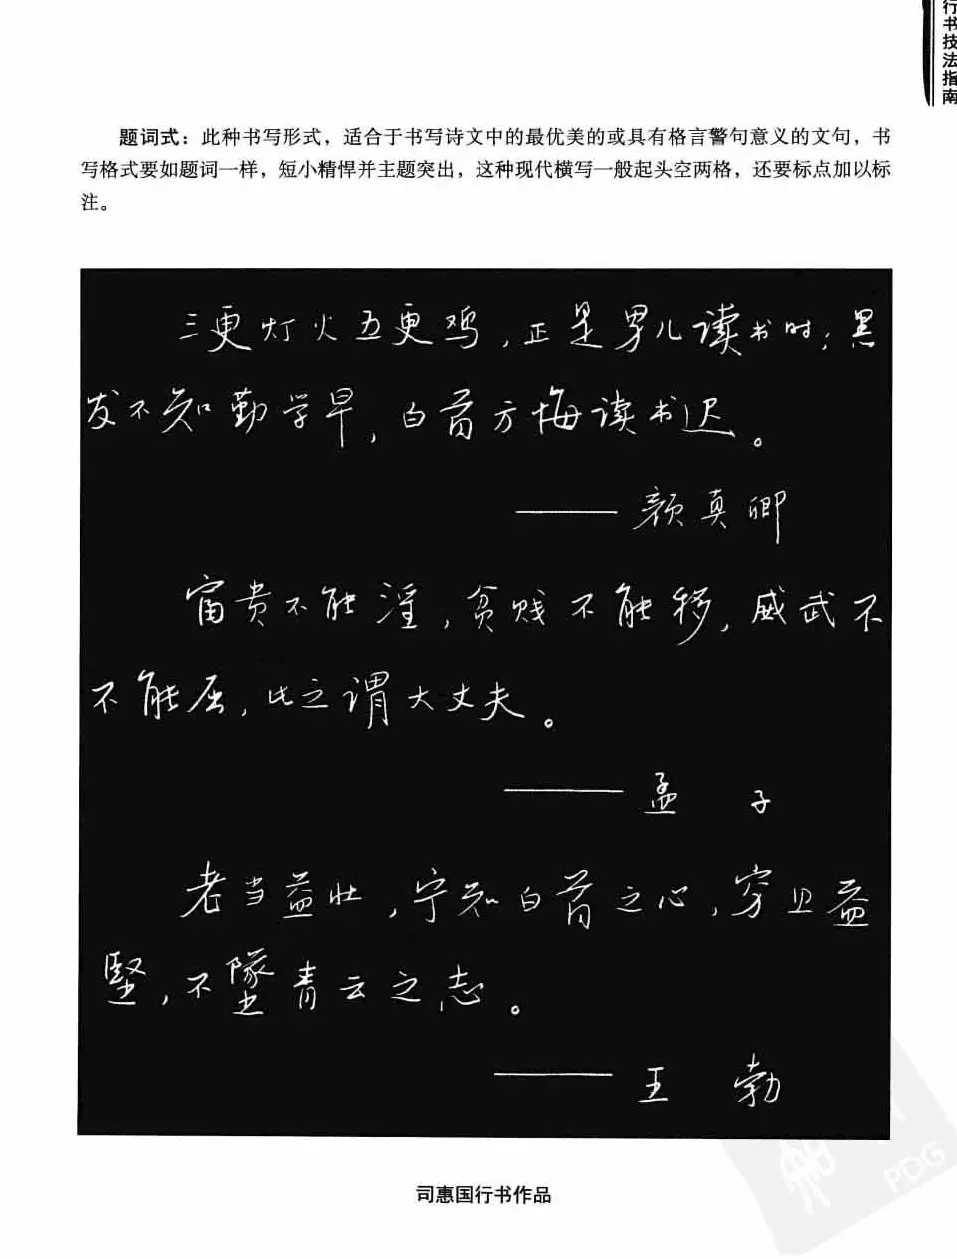 行书技法指南
题词式：此种书写形式，适合于书写诗文中的最优美的或具有格言警句意义的文句，书
写格式要如题词一样，短小精悍并主题突出，这种现代横写一般起头空两格，还要标点加以标
注。
三更灯火五更鸡，正是男儿读书时；黑
发不知勤学早，白首方悔读书迟。
——颜真卿
富贵不能淫，贫贱不能移，威武不
不能屈，此之谓大丈夫。
——孟 子
老当益壮，宁知白首之心，穷且益
堅，不墜青云之志。
——王 勃
司惠国行书作品
PDG